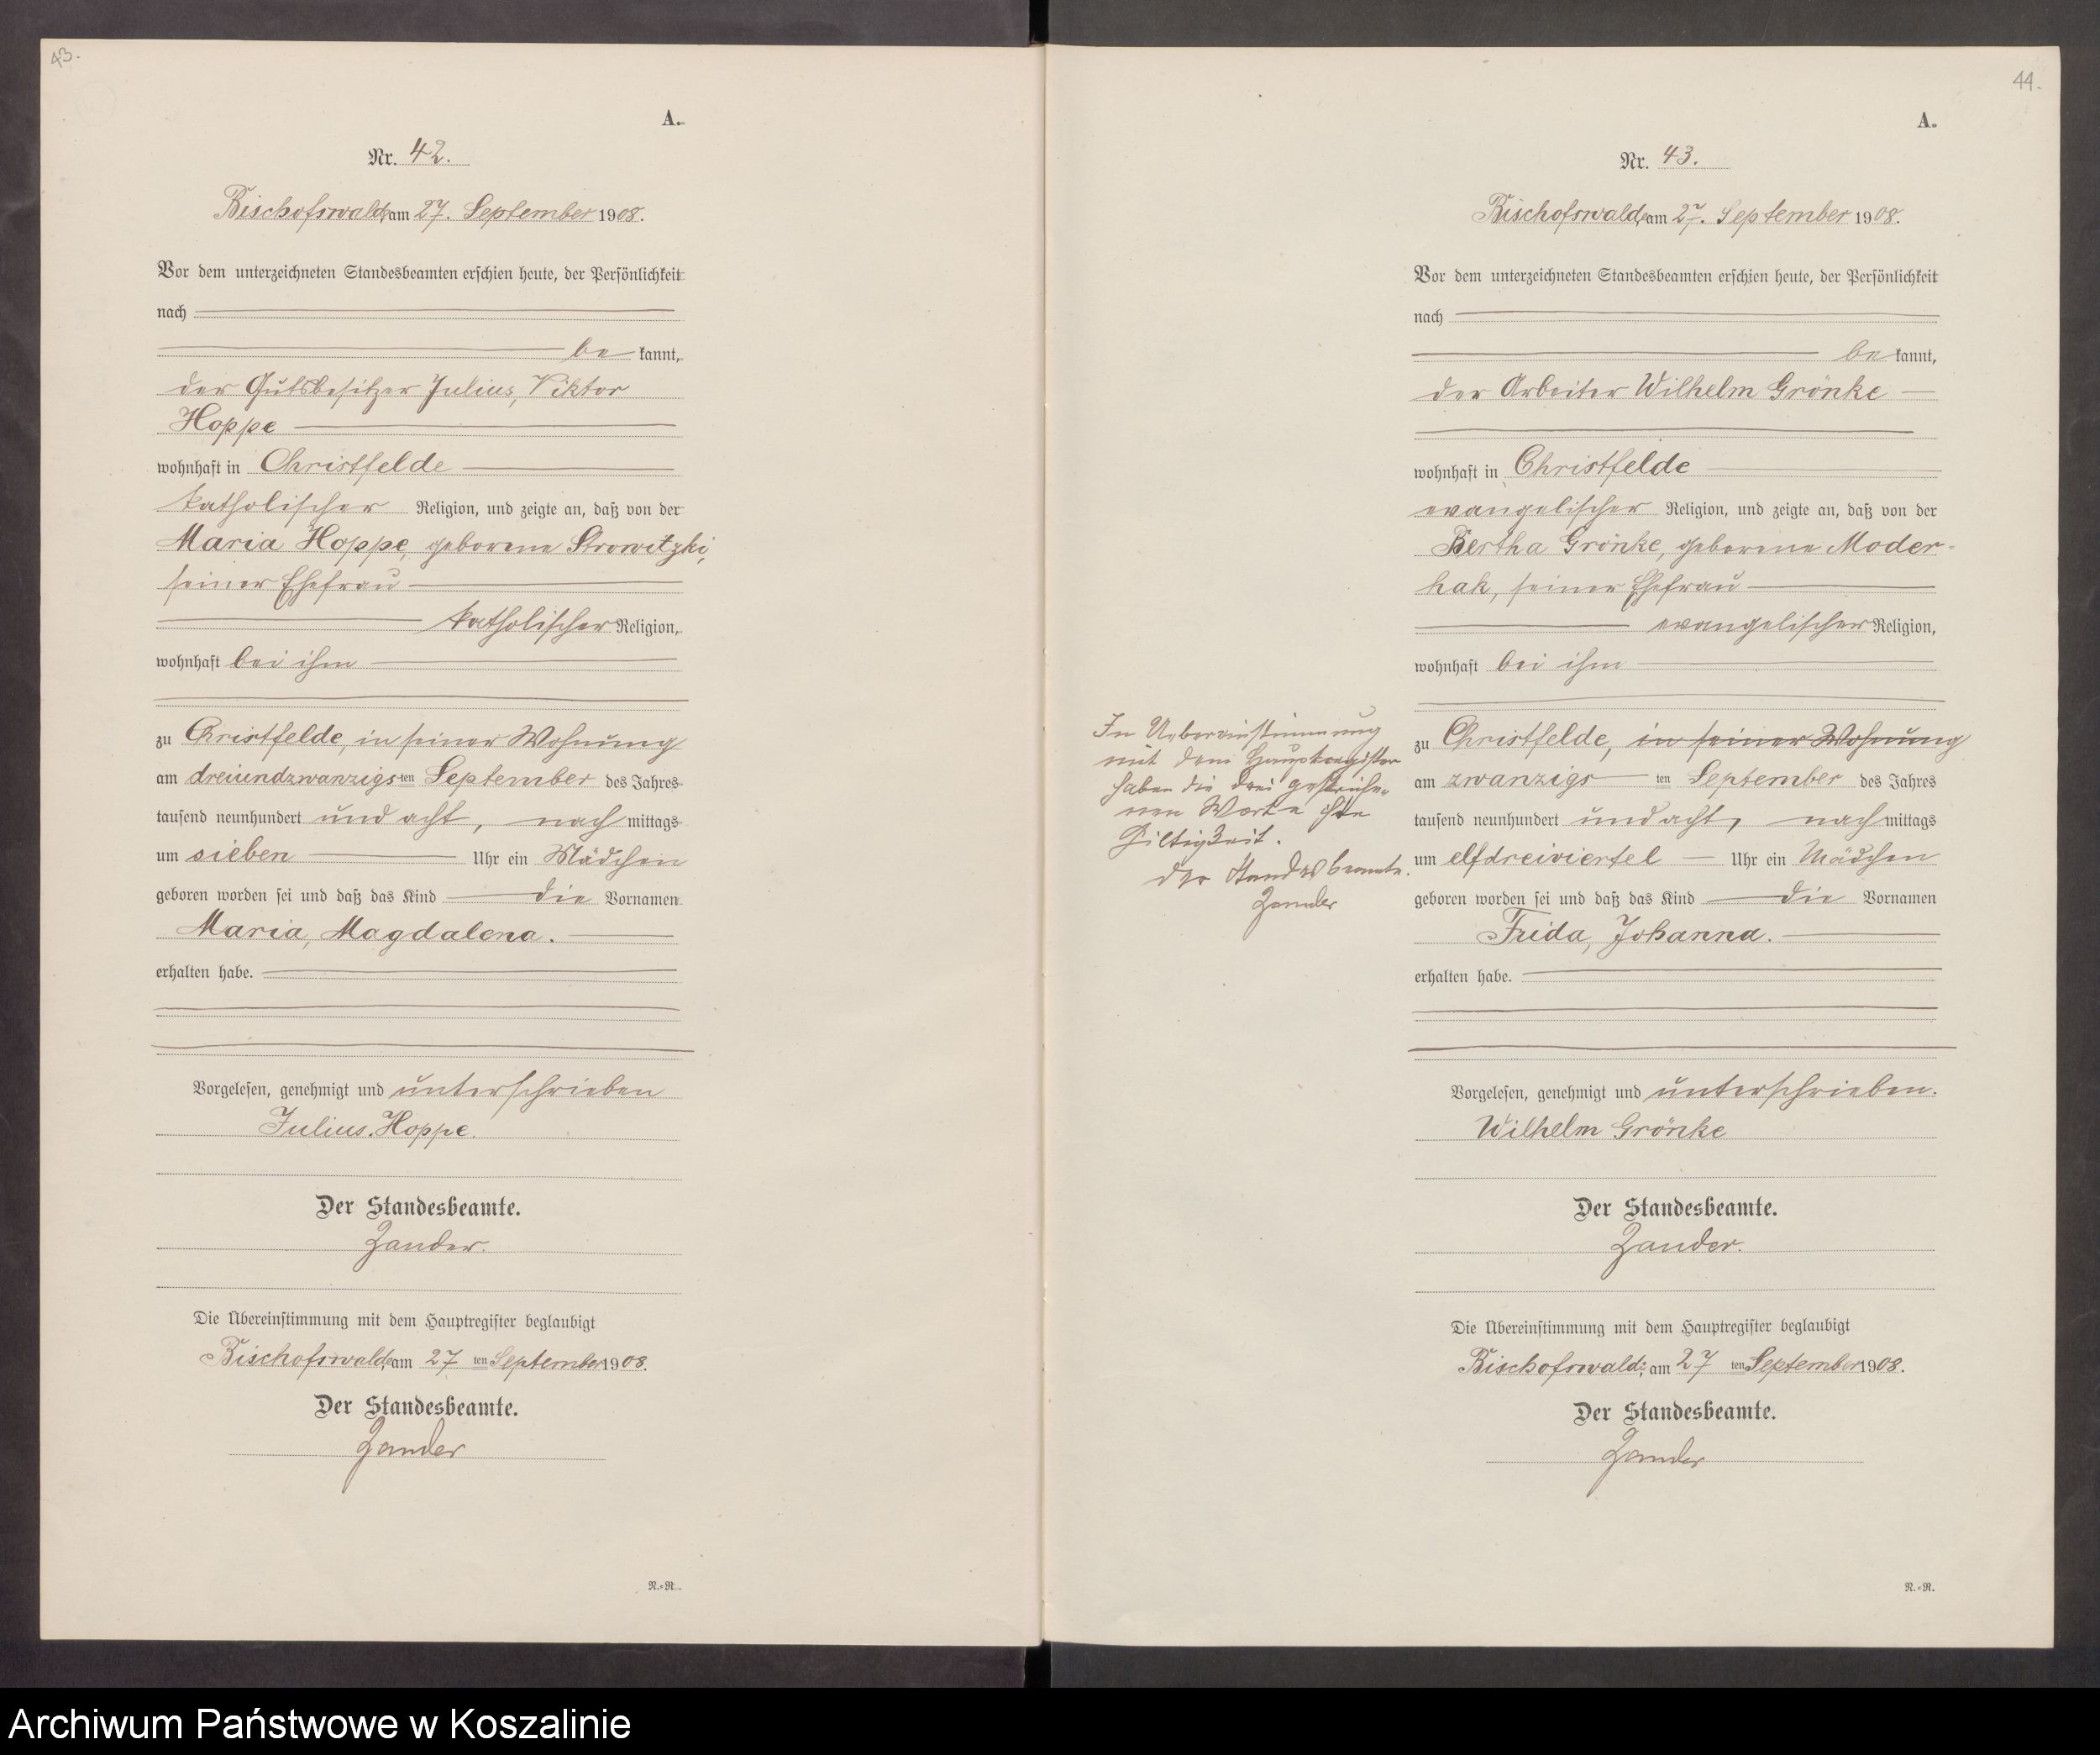 43.
A.
Nr. 42.
Bischofswalde, am 27. September 1908.
Vor dem unterzeichneten Standesbeamten erschien heute, der Persönlichkeit
nach
be kannt,
der Gutsbesitzer Julius, Viktor
Hoppe
wohnhaft in Christfelde
katholischer Religion, und zeigte an, daß von der
Maria Hoppe, geborene Strowitzki,
seiner Ehefrau
katholischer Religion,
wohnhaft bei ihm
zu Christfelde, in seiner Wohnung
am dreiundzwanzigsten September des Jahres
tausend neunhundert und acht, nach mittags
um sieben Uhr ein Mädchen
geboren worden sei und daß das Kind die Vornamen
Maria, Magdalena.
erhalten habe.
Vorgelesen, genehmigt und unterschrieben
Julius Hoppe.
Der Standesbeamte.
Zander.
Die Übereinstimmung mit dem Hauptregister beglaubigt
Bischofswalde, am 27 ten September 1908.
Der Standesbeamte.
Zander
N.-R.
44.
A.
Nr. 43.
Bischofswalde, am 27. September 1908.
Vor dem unterzeichneten Standesbeamten erschien heute, der Persönlichkeit
nach
be kannt,
der Arbeiter Wilhelm Grönke
wohnhaft in Christfelde
evangelischer Religion, und zeigte an, daß von der
Bertha Grönke, geborene Moder-
hak, seiner Ehefrau
evangelischer Religion,
wohnhaft bei ihm
zu Christfelde, in seiner Wohnung
am zwanzigsten September des Jahres
tausend neunhundert und acht, nach mittags
um elfdreiviertel Uhr ein Mädchen
geboren worden sei und daß das Kind die Vornamen
Frida, Johanna.
erhalten habe.
In Uebereinstimmung
mit dem Hauptregister
haben die drei gestriche-
nen Worte ihre
Giltigkeit.
Der Standesbeamte.
Zander
Vorgelesen, genehmigt und unterschrieben.
Wilhelm Grönke
Der Standesbeamte.
Zander.
Die Übereinstimmung mit dem Hauptregister beglaubigt
Bischofswalde, am 27 ten September 1908.
Der Standesbeamte.
Zander
N.-R.
Archiwum Państwowe w Koszalinie